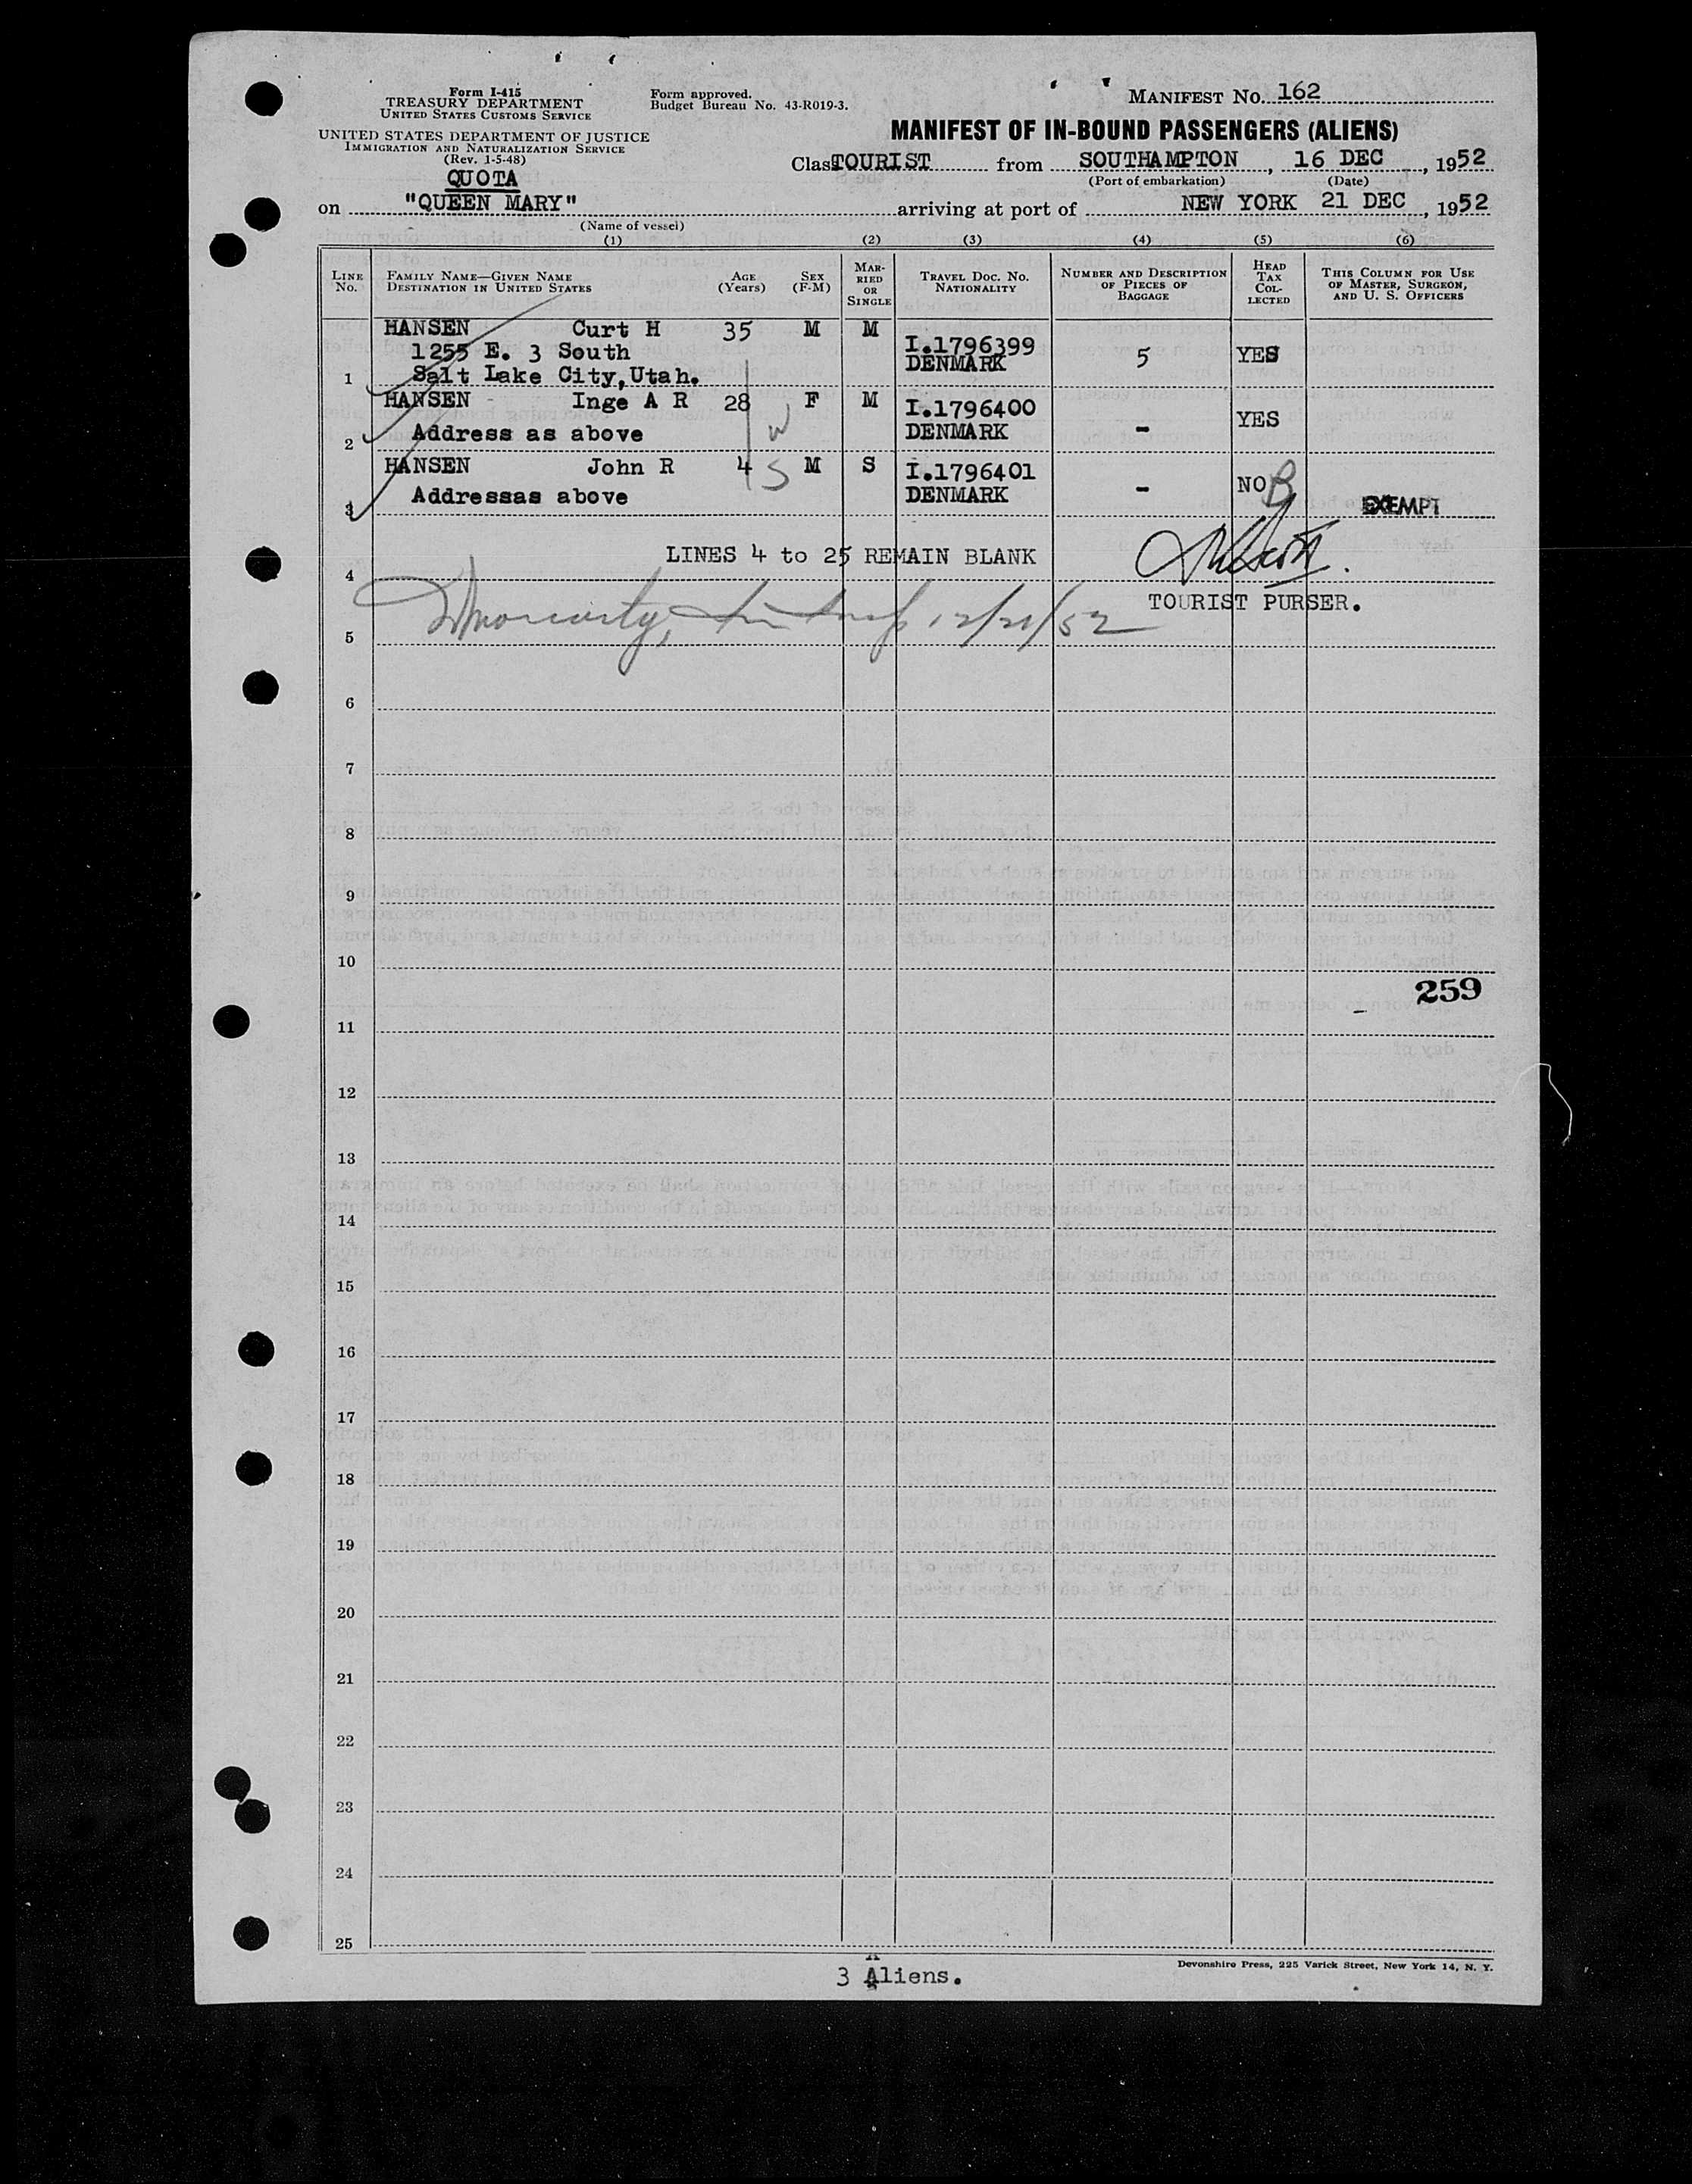 Form I-415
TREASURY DEPARTMENT
UNITED STATES CUSTOMS SERVICE
UNITED STATES DEPARTMENT OF JUSTICE
IMMIGRATION AND NATURALIZATION SERVICE
(Rev. 1-5-48)
QUOTA
Form approved.
Budget Bureau No. 43-R019-3.
MANIFEST NO. 162
MANIFEST OF IN-BOUND PASSENGERS (ALIENS)
Clas TOURIST from SOUTHAMPTON, 16 DEC, 1952
(Port of embarkation) (Date)
on "QUEEN MARY" arriving at port of NEW YORK 21 DEC, 1952
(Name of vessel)
(1) (2) (3) (4) (5) (6)
LINE NO.
FAMILY NAME—GIVEN NAME
DESTINATION IN UNITED STATES
AGE (Years)
SEX (F-M)
MARRIED OR SINGLE
TRAVEL DOC. NO.
NATIONALITY
NUMBER AND DESCRIPTION OF PIECES OF BAGGAGE
HEAD TAX COLLECTED
THIS COLUMN FOR USE OF MASTER, SURGEON, AND U. S. OFFICERS
HANSEN Curt H 35 M M I.1796399
1255 E. 3 South DENMARK 5 YES
1 Salt Lake City, Utah.
HANSEN Inge A R 28 F M I.1796400 YES
2 Address as above W DENMARK -
HANSEN John R 4 S M S I.1796401 NO B
3 Addressas above DENMARK - EXEMPT
LINES 4 to 25 REMAIN BLANK
4
TOURIST PURSER.
5 12/21/52
6
7
8
9
10
259
11
12
13
14
15
16
17
18
19
20
21
22
23
24
25
3 Aliens.
Devonshire Press, 225 Varick Street, New York 14, N. Y.